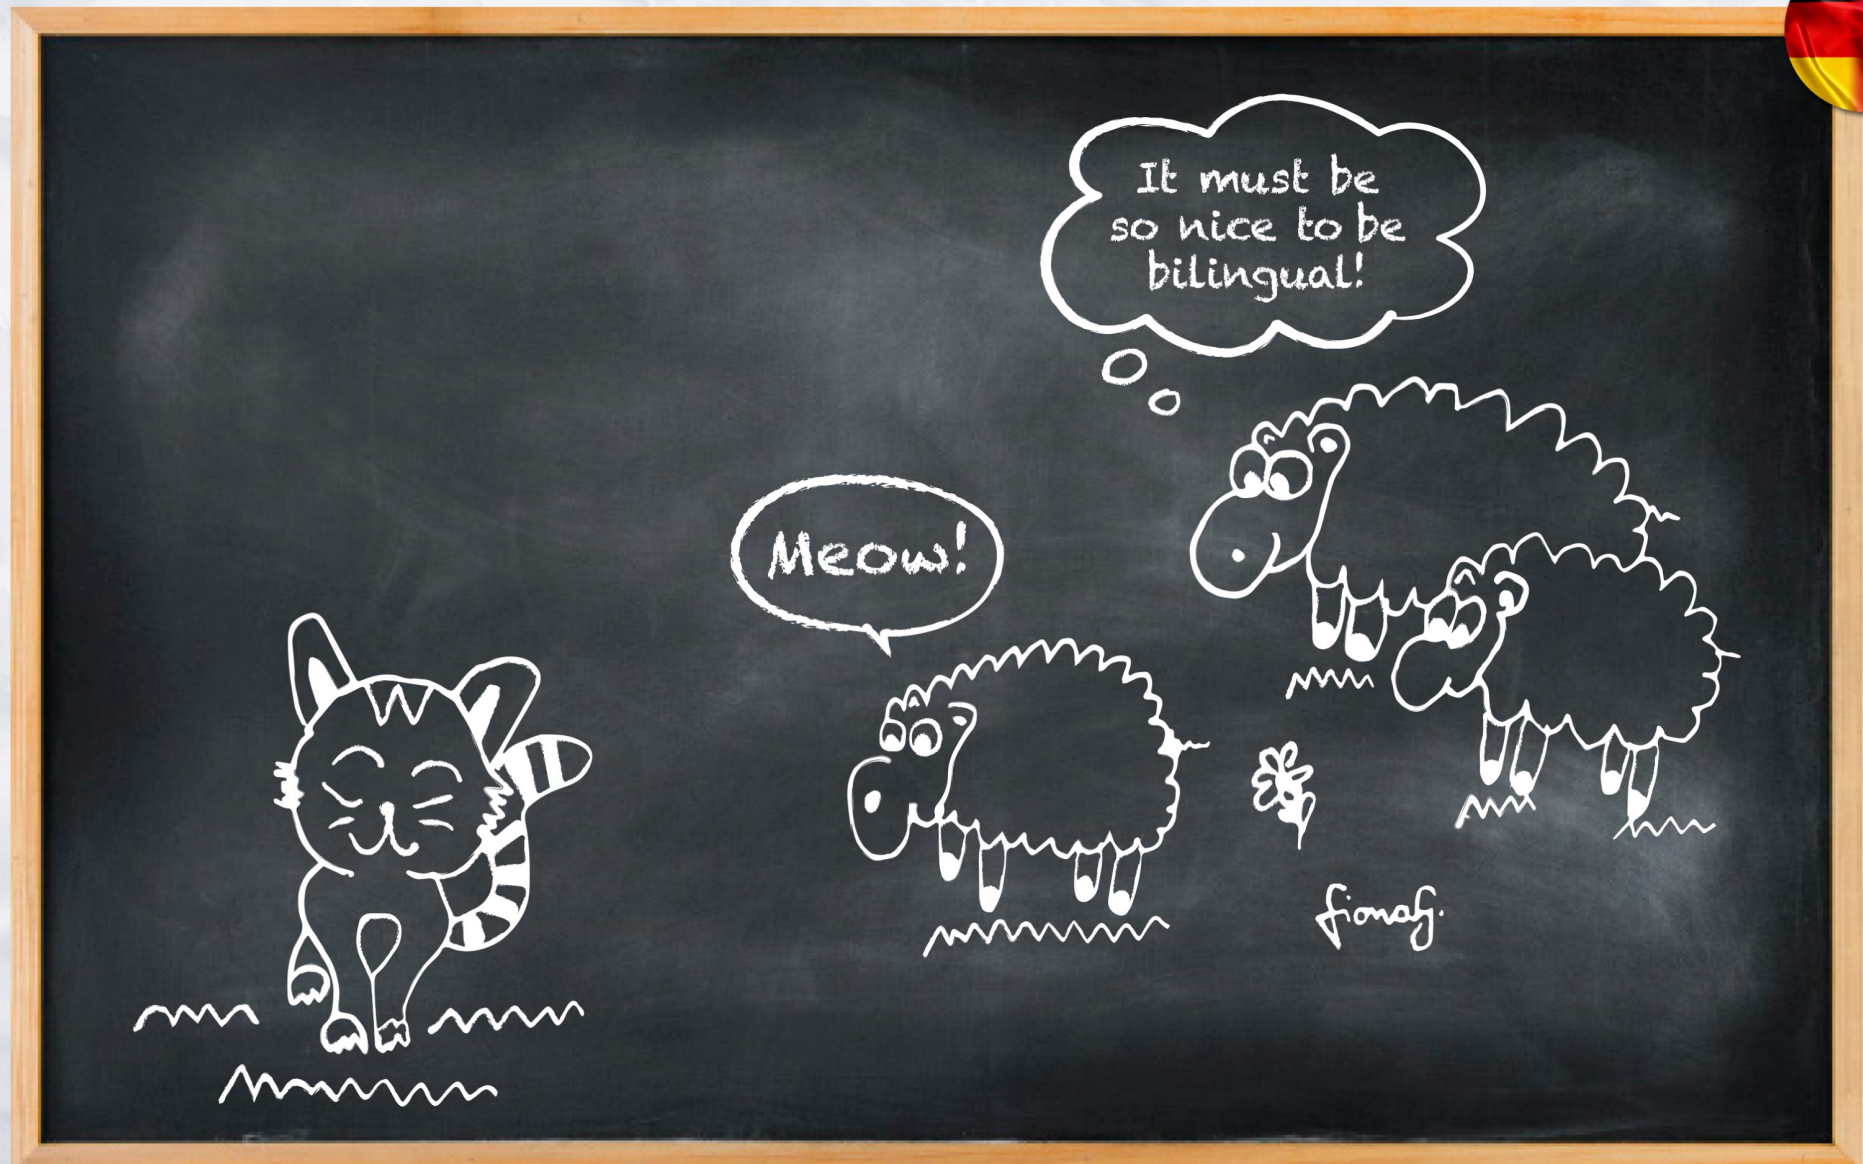 It must be
so nice to be
bilingual!
Meow!
fionafj.